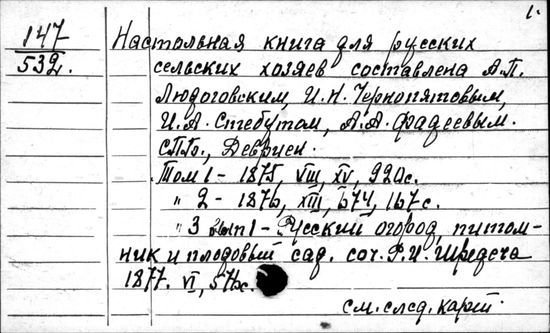 1.
147
532.
Настольная книга для русских
сельских хозяев составлена А.П.
Людоговским, И.Н. Чернопятовым,
И.А. Стебутом, А.А. Фадеевым.
С.П.б., Девриен.
Том 1 - 1875, VIII, XV, 920с.
" 2 - 1876, XIII, 674, 167с.
" 3 вып 1 - Русский огород, питом-
ник и плодовый сад. соч. Р.И. Шредера
1877. VI, 576с.
см. след. карт.